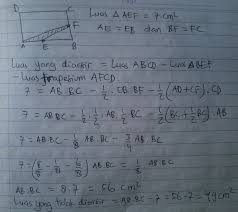 D C
F
A E B
Luas △ AEF = 7 cm²
AE = EB dan BF = FC
Luas yang diarsir = Luas ABCD - Luas △BEF
- Luas trapesium AFCD.
7 = AB.BC - 1/2 . EB.BF - 1/2 (AD+CF).CD
7 = AB.BC - 1/2 . 1/2 AB . 1/2 BC - 1/2 (BC + 1/2 BC) . AB
7 = AB.BC - 1/8 AB.BC - 3/4 AB.BC
7 = (8/8 - 1/8 - 6/8) AB.BC = 1/8 AB.BC
AB.BC = 8.7 = 56 cm²
Luas yang tidak diarsir = AB.BC - 7 = 56-7 = 49 cm²